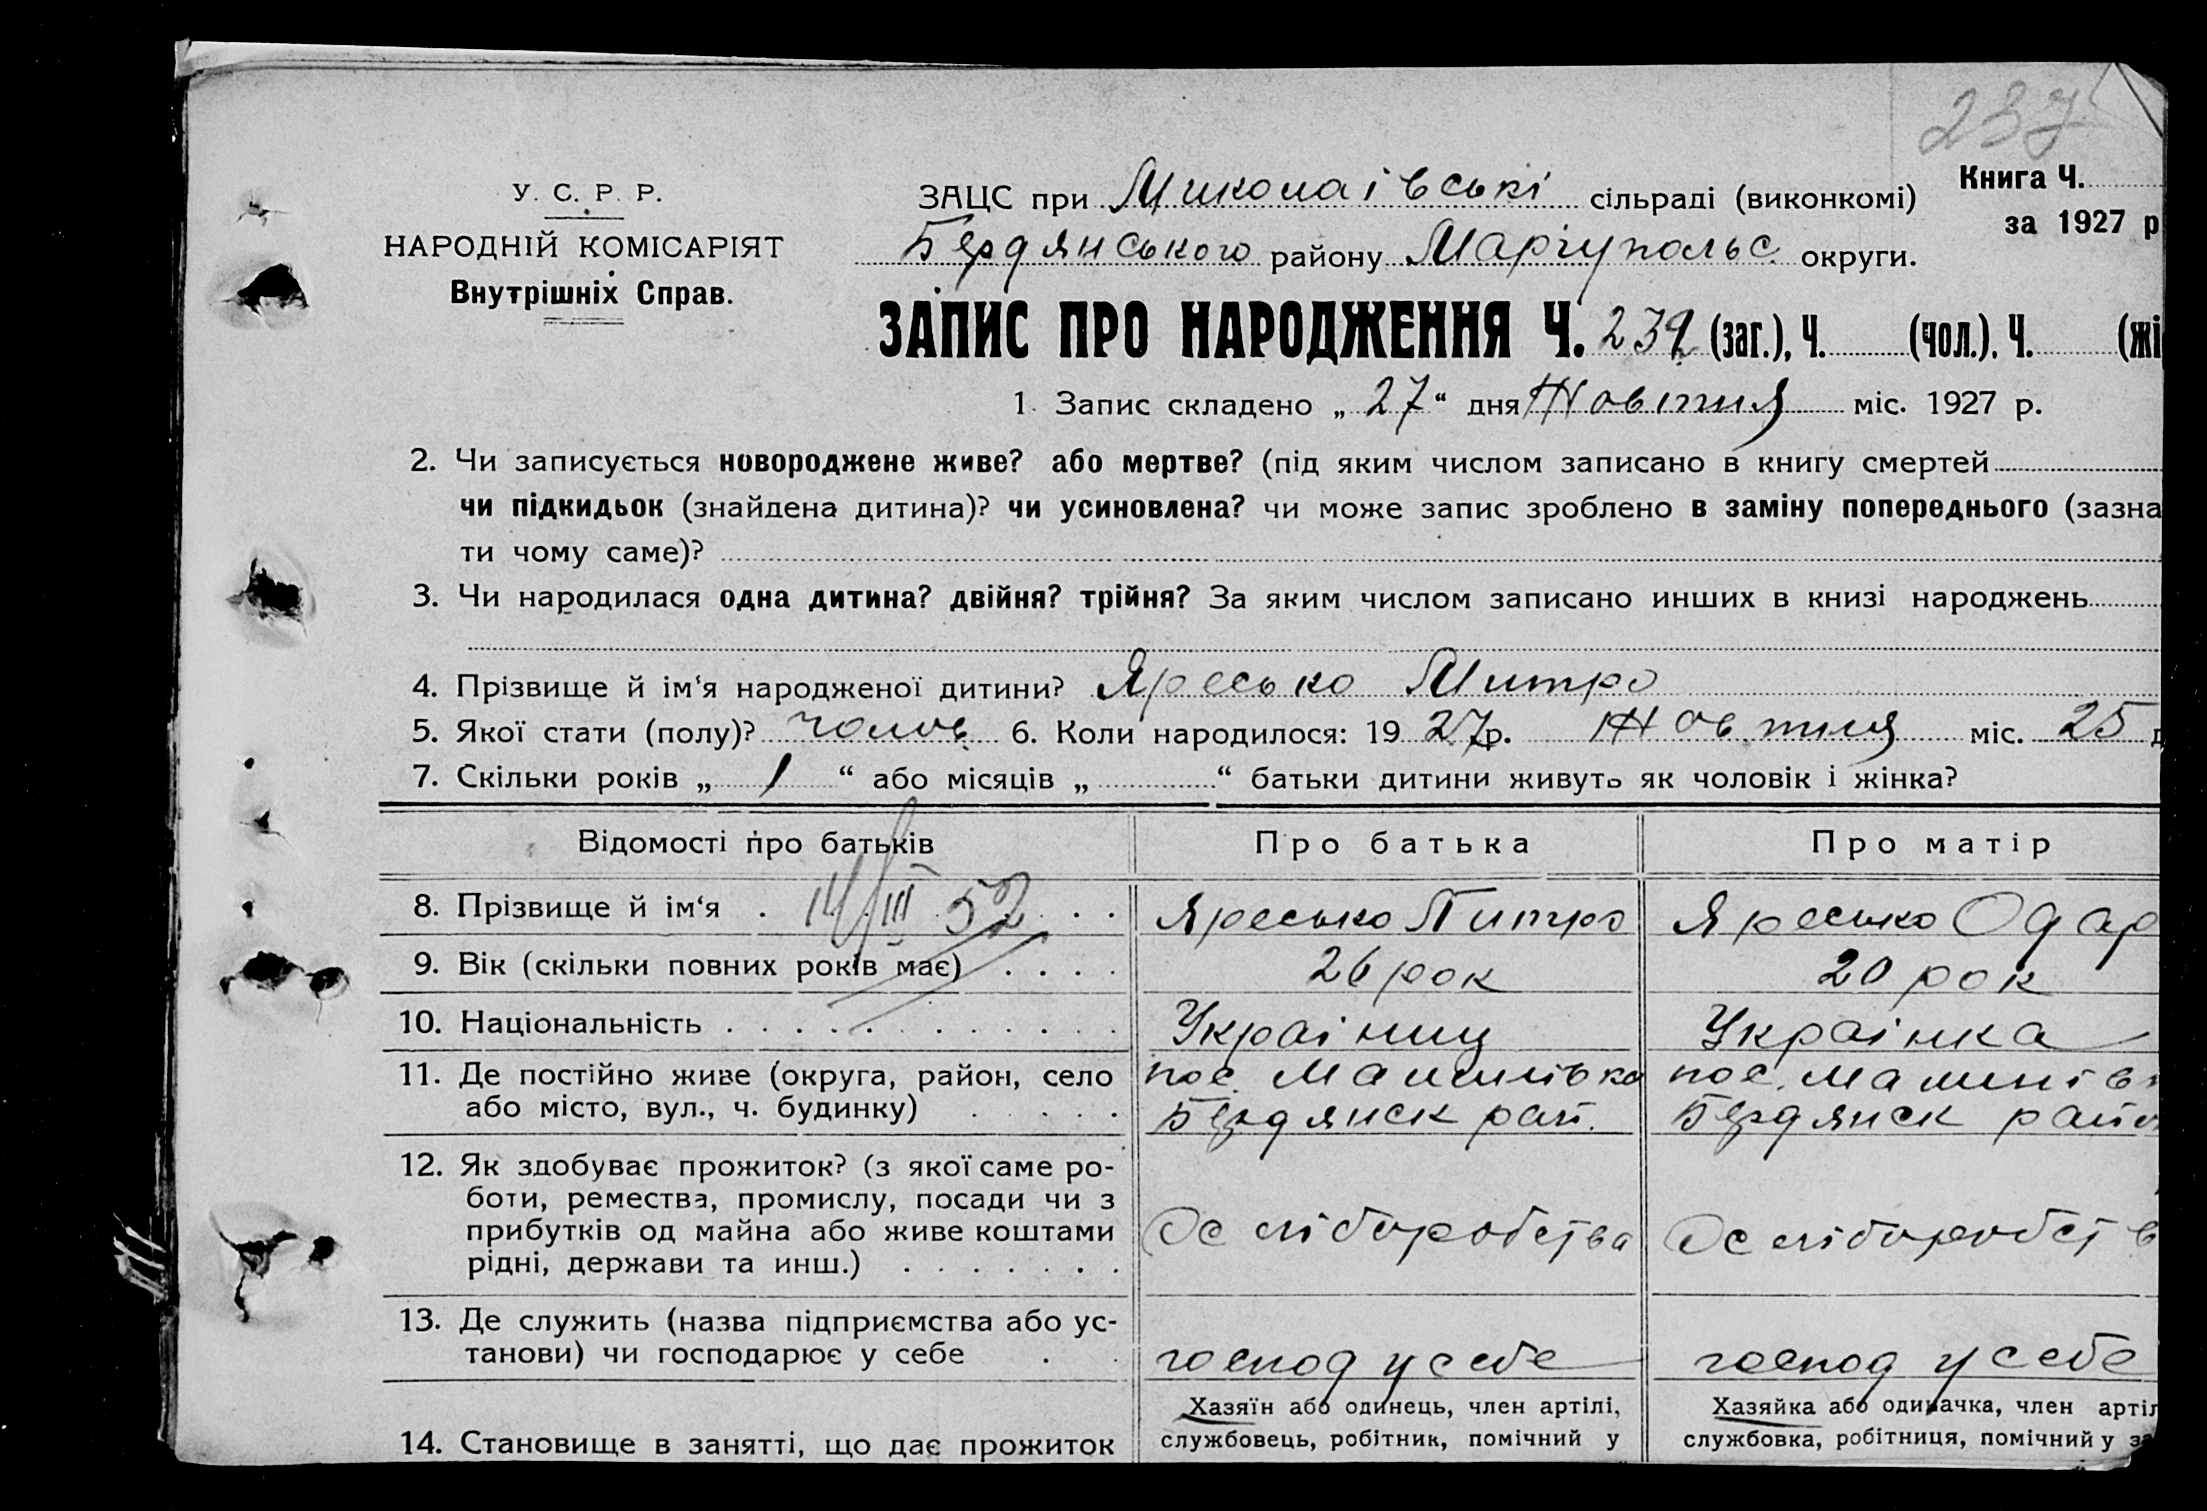 237
У. С. Р. Р.
НАРОДНІЙ КОМІСАРІЯТ
Внутрішніх Справ.
ЗАЦС при Миколаівські сільраді (виконкомі)
Книга Ч.
за 1927 р
Бердянського району Маріупольс. округи.
ЗАПИС ПРО НАРОДЖЕННЯ Ч. 239 (заг.), Ч. (чол.). Ч. (жі
1. Запис складено „ 27 “ дня Жовтня міс. 1927 р.
2. Чи записується новороджене живе? або мертве? (під яким числом записано в книгу смертей
чи підкидьок (знайдена дитина)? чи усиновлена? чи може запис зроблено в заміну попереднього (зазна
ти чому саме)?
3. Чи народилася одна дитина? двійня? трійня? За яким числом записано инших в книзі народжень
4. Прізвище й ім‘я народженої дитини? Яресько Митро
5. Якої стати (полу)? чолов. 6. Коли народилося: 19 27 р. Жовтня міс. 25 д
7. Скільки років „ 1 “ або місяців „ “ батьки дитини живуть як чоловік і жінка?
Відомості про батьків
Про батька
Про матір
14/III 52
8. Прізвище й ім‘я
Яресько Питро
Яресько Одар
9. Вік (скільки повних років має)
26 рок
20 рок
10. Національність
Украіниц
Украінка
11. Де постійно живе (округа, район, село
або місто, вул., ч. будинку)
пос.
Бердянск рай.
пос.
Бердянск район
12. Як здобуває прожиток? (з якої саме ро-
боти, ремества, промислу, посади чи з
прибутків од майна або живе коштами
рідні, держави та инш.)
Ос хліборобства
Ос хліборобств
13. Де служить (назва підприємства або ус-
танови) чи господарює у себе
господ у себе
господ у себе
14. Становище в занятті, що дає прожиток
Хазяїн або одинець, член артілі,
службовець, робітник, помічний у
Хазяйка або одиначка, член артіл
службовка, робітниця, помічний у за